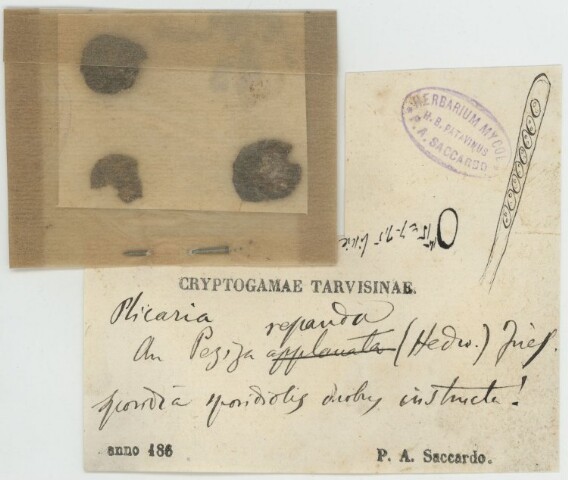 HERBARIUM MYCOL.
H. B. PATAVINUS
P. A. SACCARDO
CRYPTOGAMAE TARVISINAE.
Plicaria repanda
An Peziza applanata (Hedw.) Fries.
sporidia sporidiolis duobus instructa!
anno 186
P. A. Saccardo.